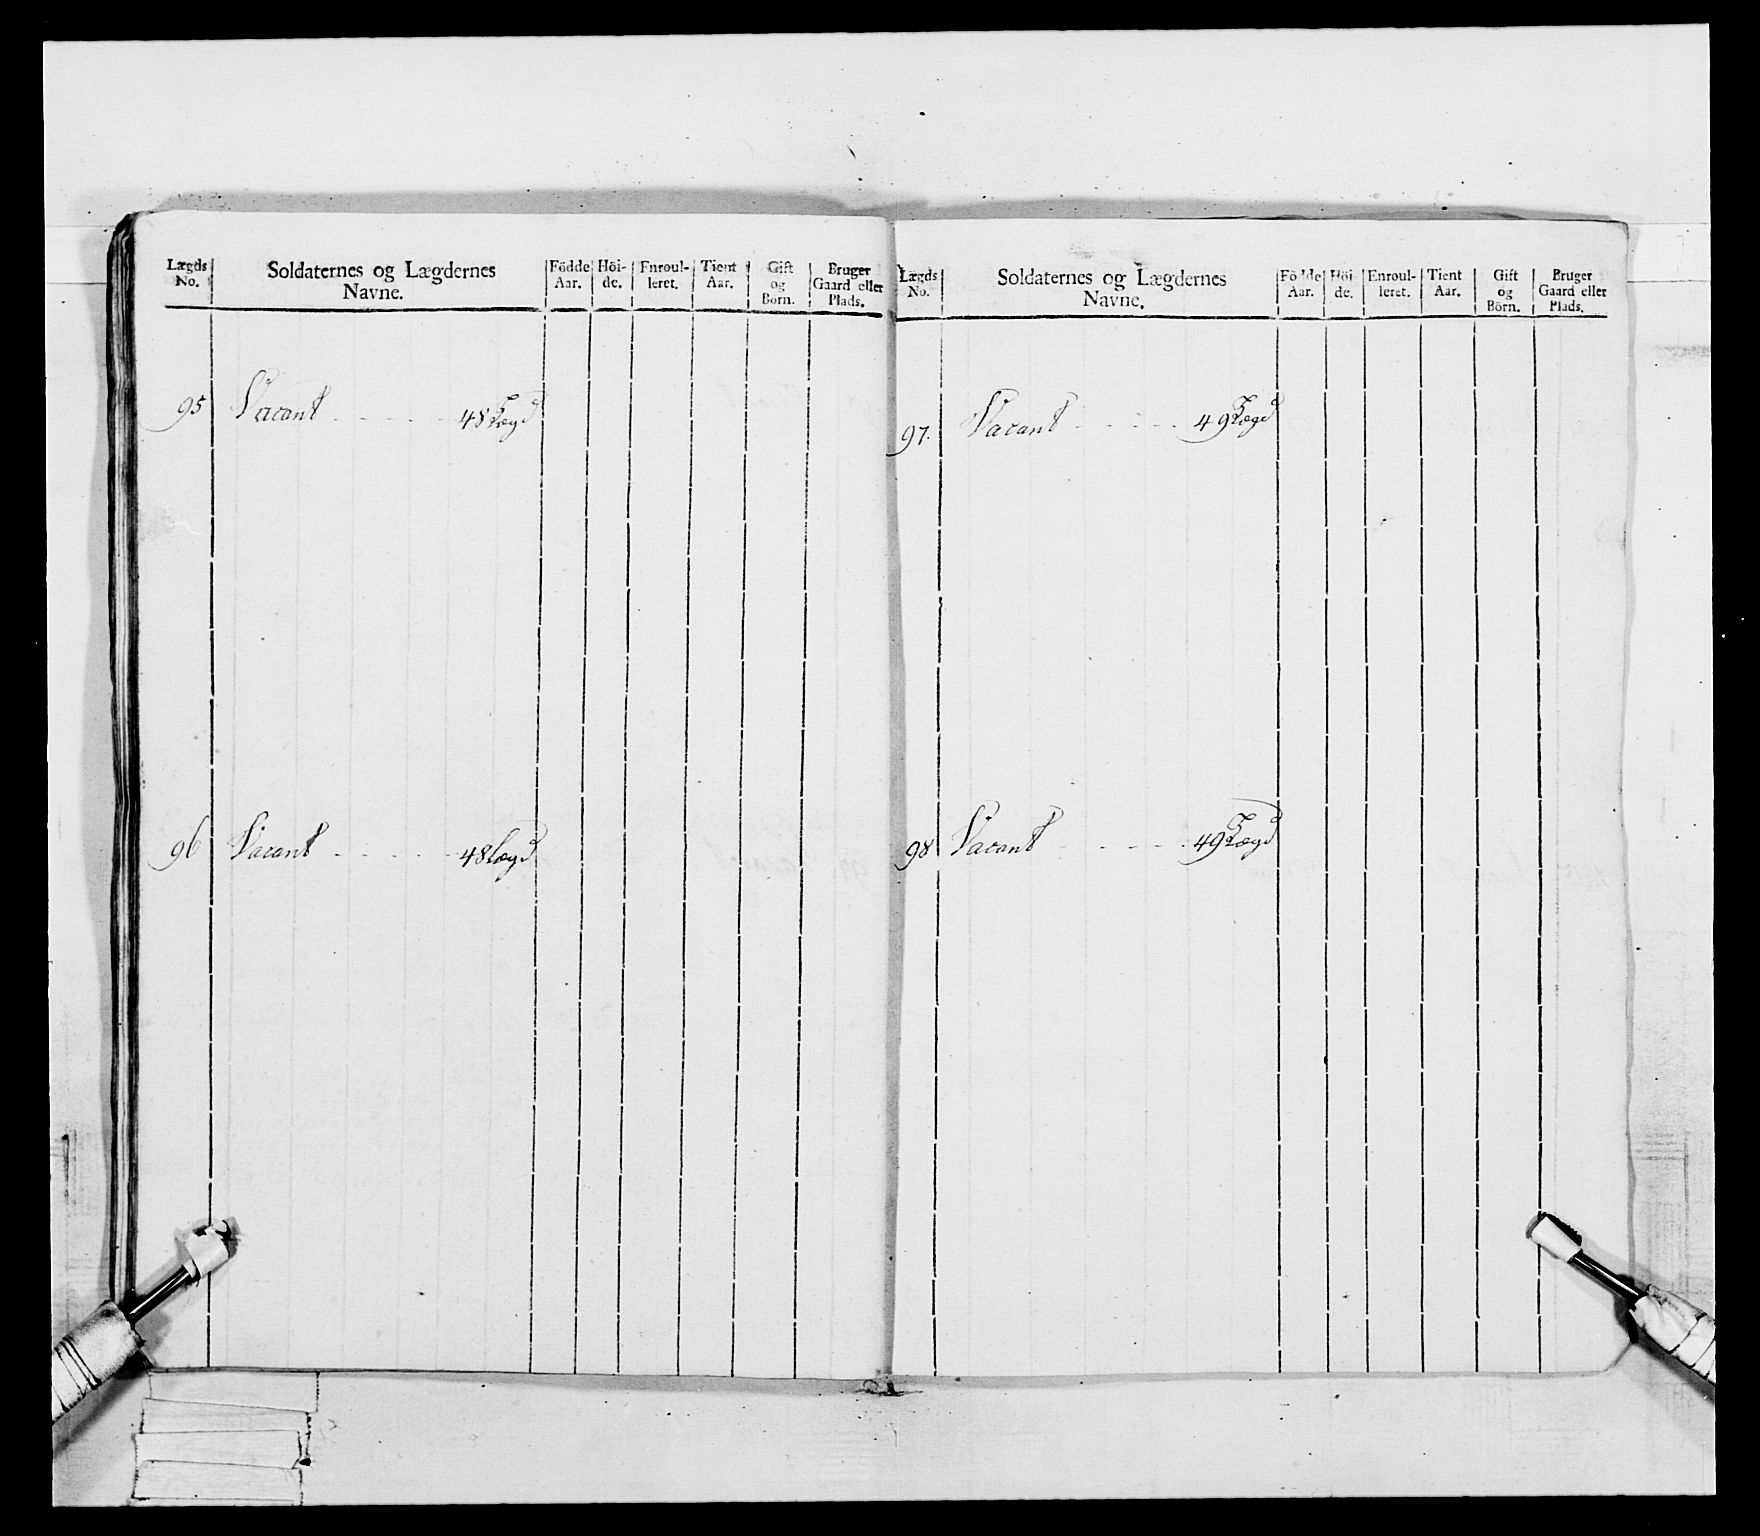 Lægds No. Soldaternes og Lægdernes Navne. Födde Aar. Höi-de. Enroul-leret. Tient Aar. Gift og Börn. Bruger Gaard eller Plads.
95 Vacant - - - - - 48 Lægd
96 Vacant - - - - - 48 Lægd
Lægds No. Soldaternes og Lægdernes Navne. Födde Aar. Höi-de. Enroul-leret. Tient Aar. Gift og Börn. Bruger Gaard eller Plads.
97. Vacant - - - - - 49 Lægd
98 Vacant - - - - - 49 Lægd